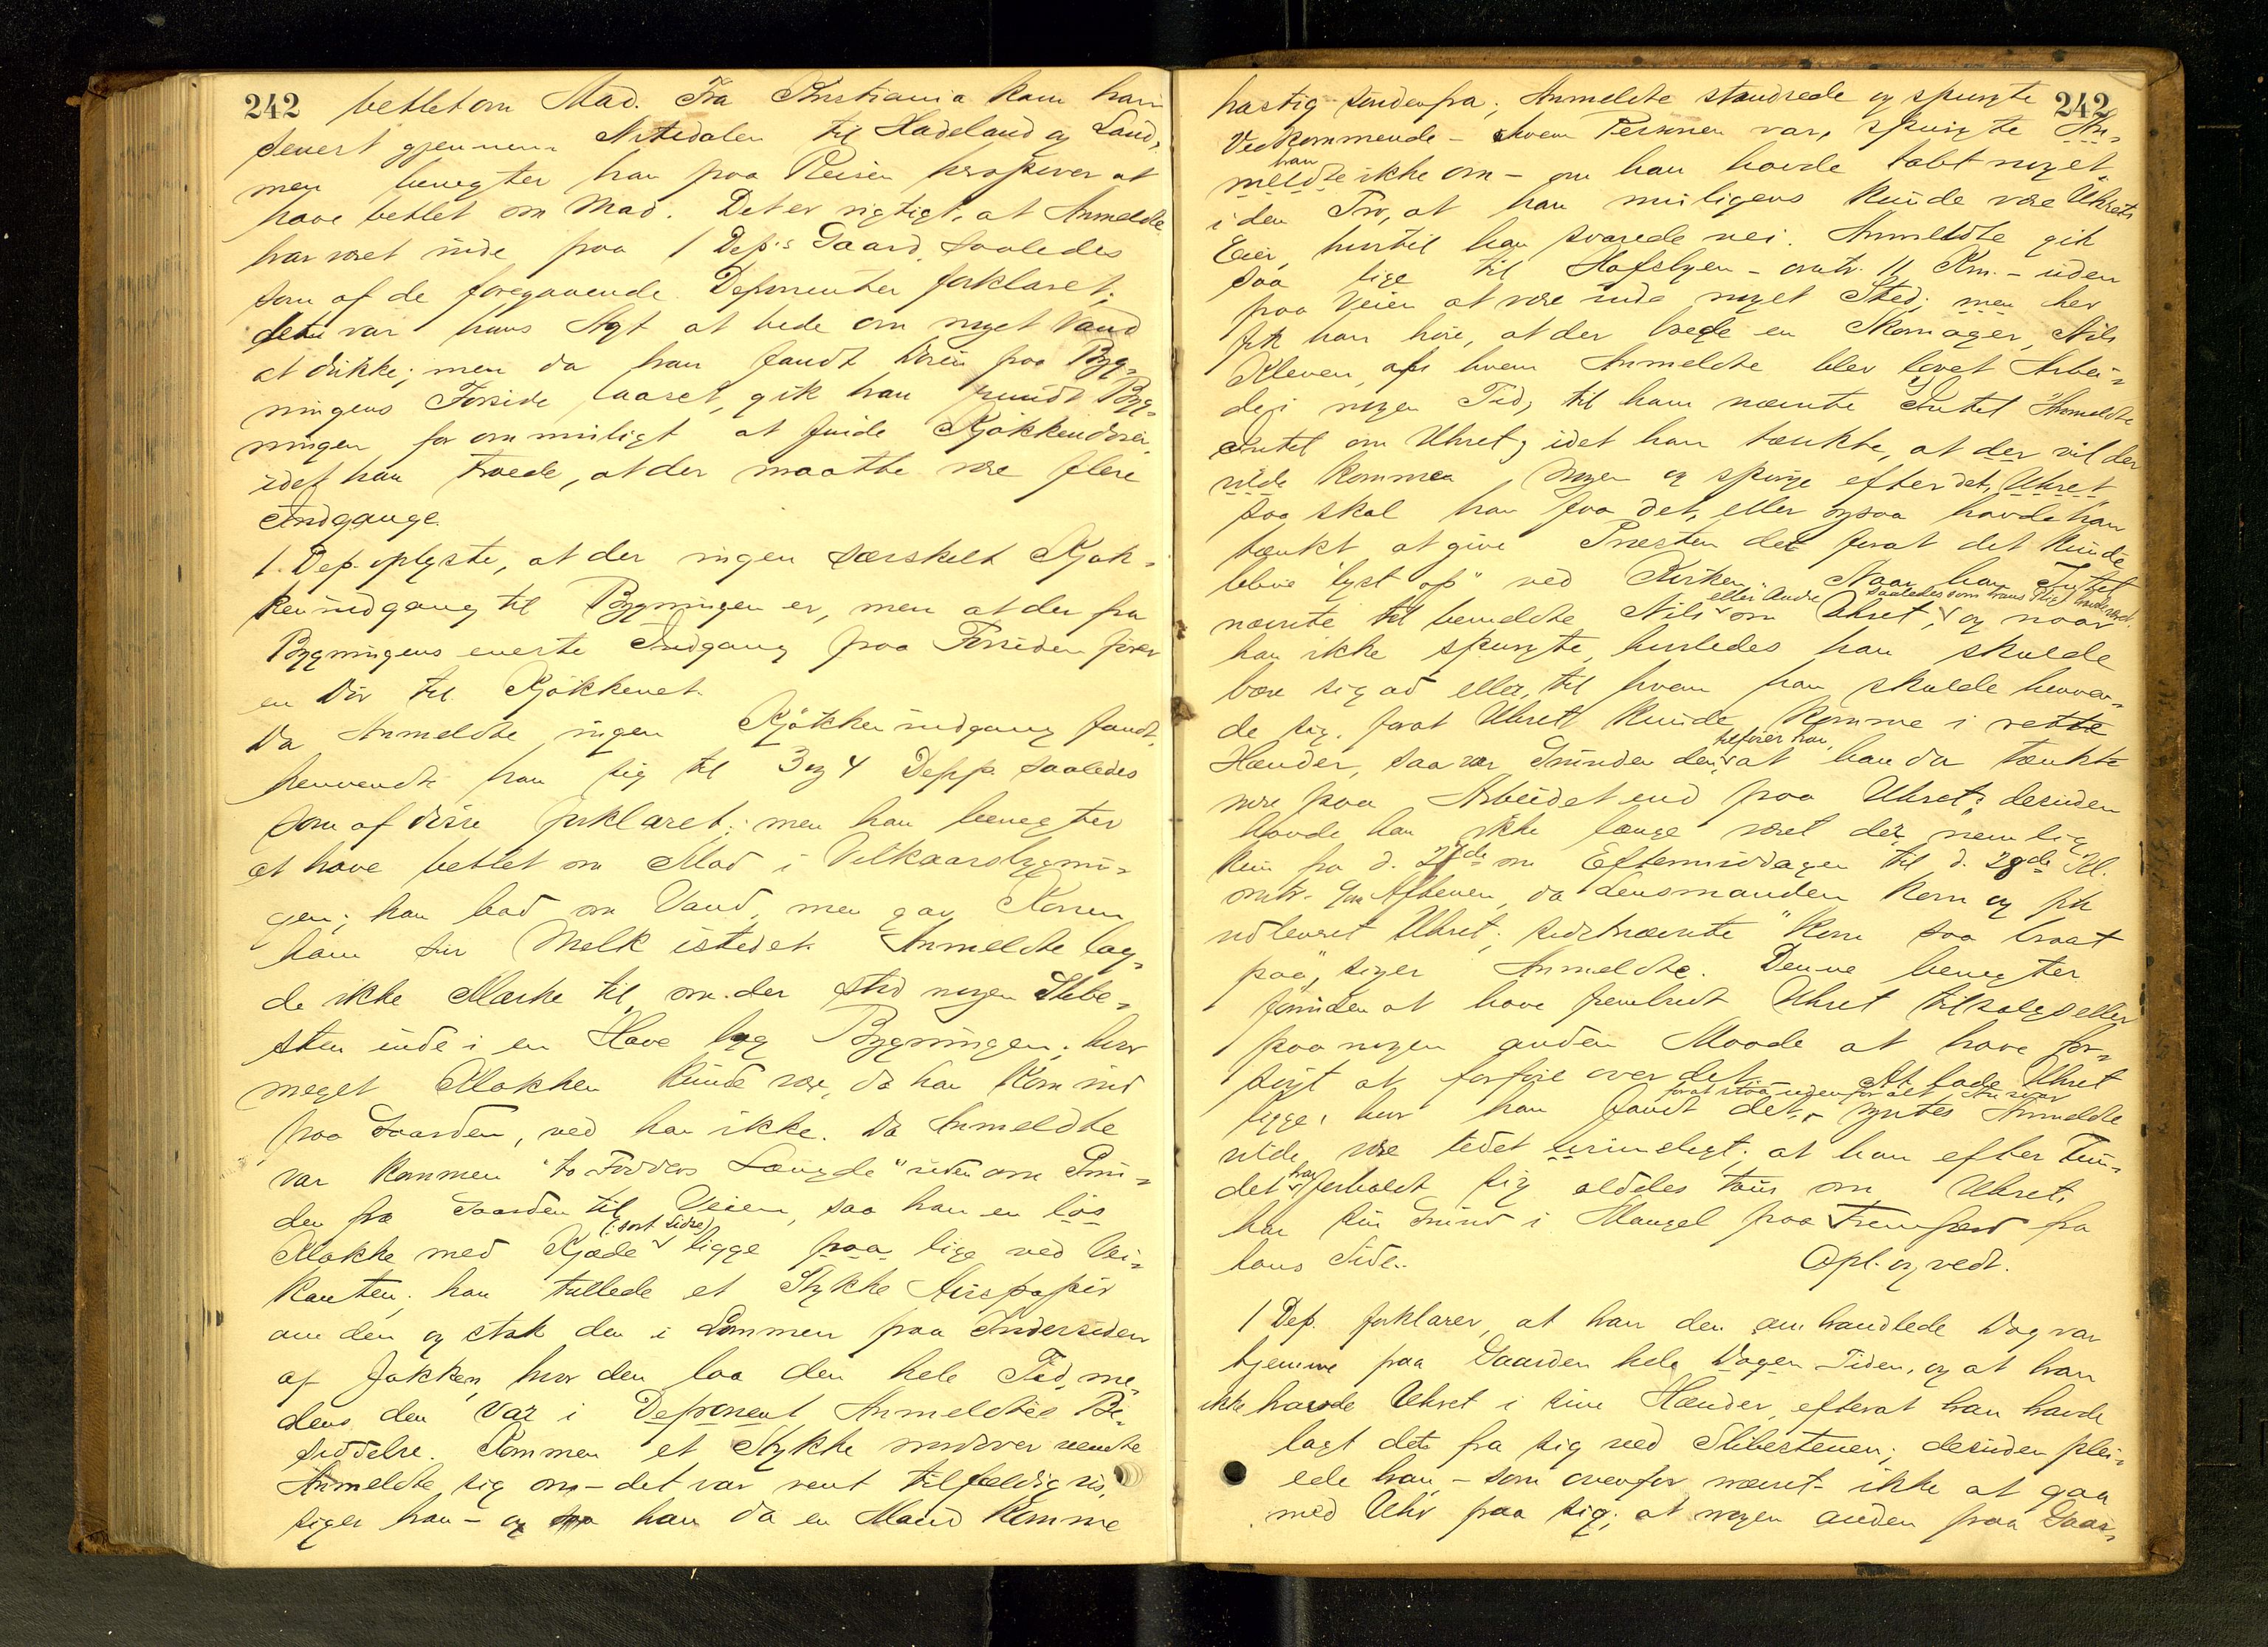 242 betlet om Mad. Fra Kristiania kom han
senest gjennem Nitedalen til Hadeland og Land,
men benegter han paa Reisen heropover at
have betlet om Mad. Det er rigtigt, at Anmeldte
har været inde paa 1 Dep.s Gaard, saaledes
som af de foregaaende Deponenter forklaret;
det var hans Agt at bede om noget Vand
at drikke; men da han fandt Døren paa Byg-
ningens Forside laaset, gik han rundt Byg-
ningen for om muligt at finde Kjøkkendøren
idet han troede, at der maatte være flere
Indgange.
1. Dep. oplyste, at der ingen særskelt Kjøk-
kenindgang til Bygningen er, men at der fra
Bygningens eneste Indgang paa Forsiden fører
en Dør til Kjøkkenet.
Da Anmeldte ingen Kjøkkenindgang fandt,
henvendte han sig til 3 og 4 Depp. saaledes
som af disse forklaret; men han benegter
at have betlet om Mad i Vilkaarsbygnin-
gen; han bad om Vand, men gav Konen
ham sur Melk istedet. Anmeldte lag-
de ikke Mærke til, om der stod nogen Slibe-
sten inde i en Have bag Bygningen; hvor
meget Klokken kunde være, da han kom ind
paa Gaarden, ved han ikke. Da Anmeldte
var kommen "to Fodders Længde" udenom Grin-
den fra Gaarden til Veien, saa han en løs
Klokke med Kjæde (: sort Lidse) ligge paa lige ved Vei-
kanten; han tullede et Stykke Avispapir
om den og stak den i Lommen paa Indersiden
af Jakken, hvor den laa den hele Tid, me-
dens den var i Deponent Anmeldtes Be-
siddelse. Kommen et Stykke nordover vendte
Anmeldte sig om – det var rent tilfældigvis,
siger han – og saa han da en Mand komme
hastig søndenfra; Anmeldte standsede og spurgte 242
Vedkommende – hvem Personen var, spurgte An-
meldte han ikke om – om han havde tabt noget,
i den Tro, at han muligens kunde være Uhrets
Eier, hvortil han svarede nei. Anmeldte gik
saa lige til Hofsbyen – omtr. 11 Km. – uden
paa Veien at være inde noget Sted; men her
fik han høre, at der boede en Skomager, Nils
Kleven, af hvem Anmeldte blev lovet Arbei-
de i nogen Tid; til ham nævnte Intet Anmeldte
Intet om Uhret, idet han tænkte, at der vil der
vilde komme Nogen og spørge efter det, Uhret
saa skal han faa det, eller ogsaa havde han
tænkt at give Præsten det forat det kunde
blive "lyst op" ved Kirken. Naar han Intet
nævnte til bemeldte Nils eller Andre om Uhret, saaledes som hans Pligt havde været, og naar
han ikke spurgte, hvorledes han skulde
bære sig ad eller, til hvem han skulde henven-
de sig, forat Uhret kunde komme i rette
Hænder, saa var Grunden den, tilføier han, at han da tænkte
mere paa Arbeidet end paa Uhret; desuden
havde han ikke længe været der, nemlig
kun fra d. 27de om Eftermiddagen til d. 28de Kl.
omtr. 9 om Aftenen, da Lensmanden kom og fik
udleveret Uhret; sidstnævnte "kom saa braat
paa", siger Anmeldte. Denne benegter
forøvrigt at have frembudt Uhret tilsalgs eller
paa nogen anden Maade at have for-
søgt at forføie over det. At lade Uhret
ligge, hvor han fandt det, forat staa udenfor alt Ansvar syntes Anmeldte
vilde være lidet rimeligt; at han efter Fun-
det har forholdt sig aldeles taus om Uhret,
har sin Grund i Mangel paa Fremfærd fra
hans Side.. Opl. og vedt.
1 Dep. forklarer, at han den omhandlede Dag var
hjemme paa Gaarden hele Dagen Tiden, og at han
ikke havde Uhret i sine Hænder, efterat han havde
lagt det fra sig ved Slibestenen; desuden plei-
ede han – som ovenfor nævnt – ikke at gaa
med Uhr paa sig; at nogen anden paa Gaar-